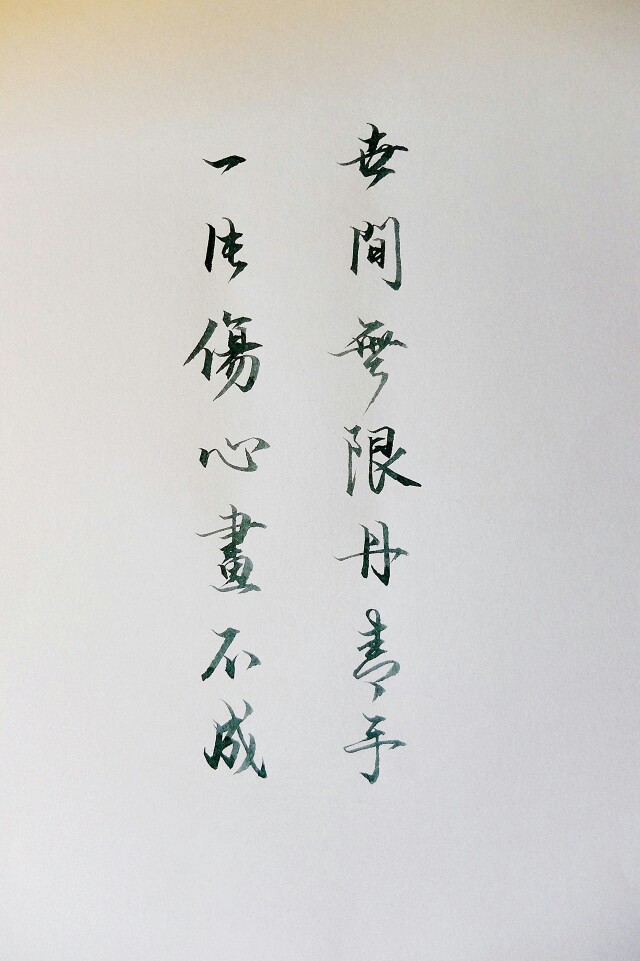 世間無限丹青手
一片傷心畫不成